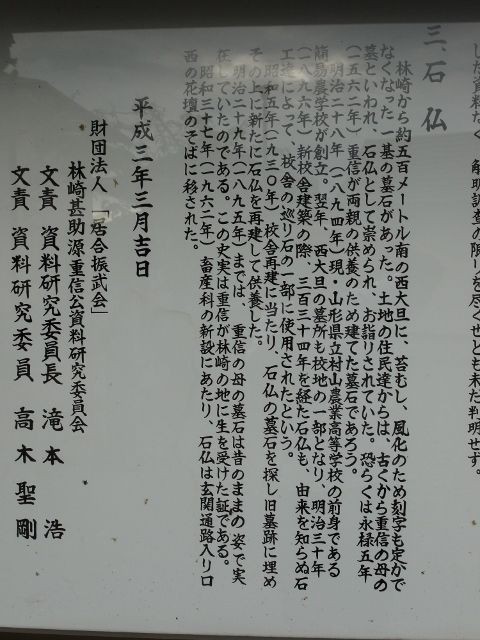 した資料なく、解明調査の限りを尽くせども未だ判明せず。
三、石仏
林崎から約五百メートル南の西大旦に、苔むし、風化のため刻字も定かで
なくなった一基の墓石があった。土地の住民達からは、古くから重信の母の
墓といわれ、石仏として崇められ、お詣りされていた。恐らくは永禄五年
(一五六二年)重信が両親の供養のため建てた墓石であろう。
明治二十八年(一八九四年)現・山形県立村山農業高等学校の前身である
簡易農学校が創立。翌年、西大旦の墓所も校地の一部となり、明治三十年
(一八九六年)新校舎建築の際、三百三十四年を経た石仏も、由来を知らぬ石
工達によって、校舎の巡り石の一部に使用されたという。
昭和五年(一九三〇年)校舎再建に当たり、石仏の墓石を探し旧墓跡に埋め
その上に新たに石仏を再建して供養した。
明治二十九年(一八九五年)までは、重信の母の墓石は昔のままの姿で実
在していたのである。この史実は重信が林崎の地に生を受けた証である。
昭和三十七年(一九六二年)畜産科の新設にあたり、石仏は玄関通路入り口
西の花壇のそばに移された。
平成三年三月吉日
財団法人 「居合振武会」
林崎甚助源重信公資料研究委員会
文責 資料研究委員長 滝本 浩
文責 資料研究委員 高木聖剛